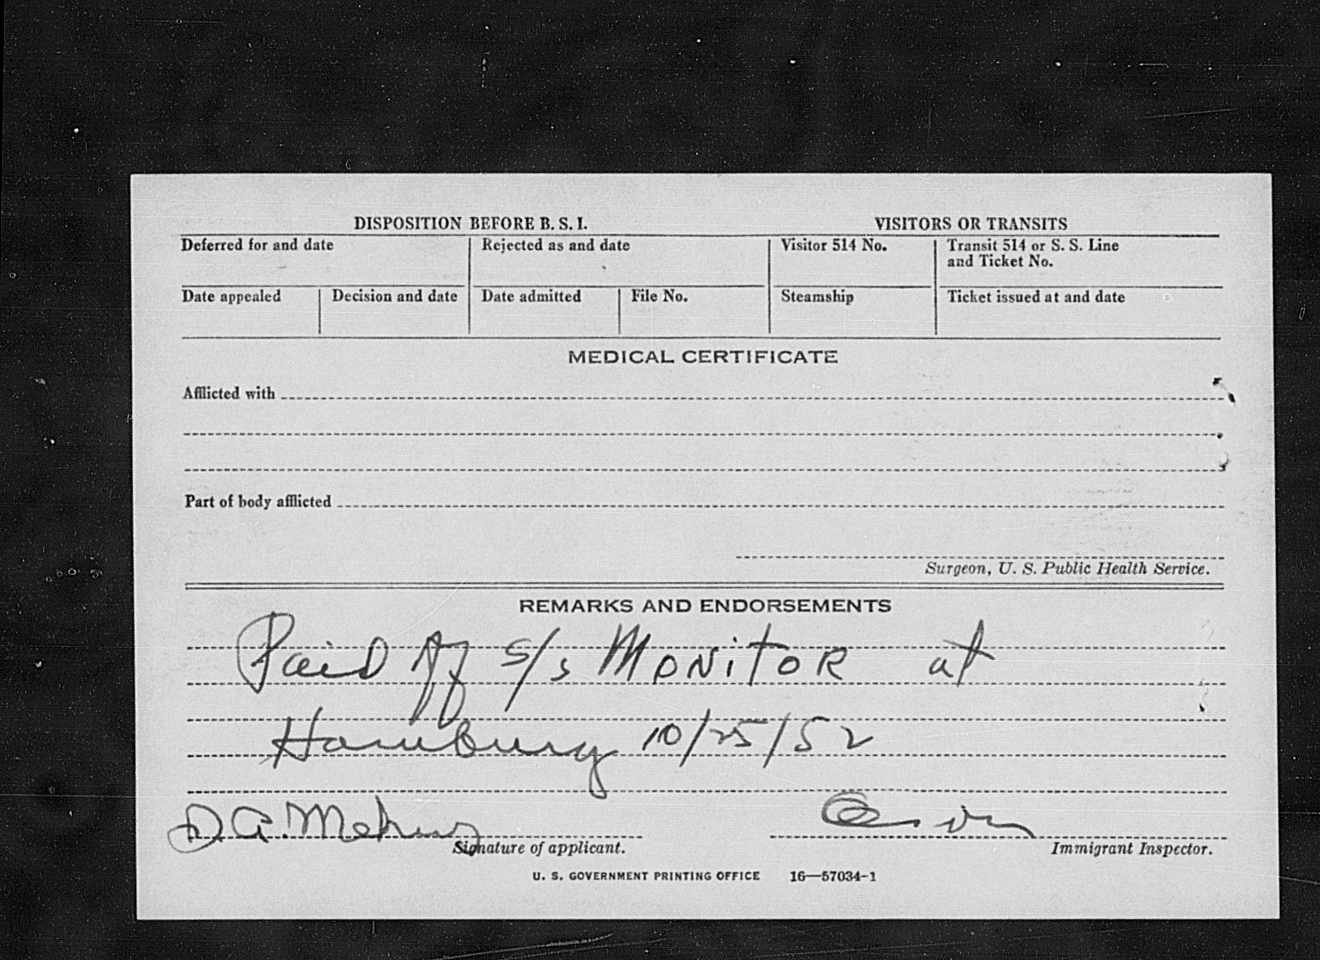 DISPOSITION BEFORE B. S. I. VISITORS OR TRANSITS
Deferred for and date Rejected as and date Visitor 514 No. Transit 514 or S. S. Line
and Ticket No.
Date appealed Decision and date Date admitted File No. Steamship Ticket issued at and date
MEDICAL CERTIFICATE
Afflicted with
Part of body afflicted
Surgeon, U. S. Public Health Service.
REMARKS AND ENDORSEMENTS
Paid Off S/S MONITOR at
Hamburg 10/25/52
D. A.
Signature of applicant. Immigrant Inspector.
U. S. GOVERNMENT PRINTING OFFICE 16—57034-1